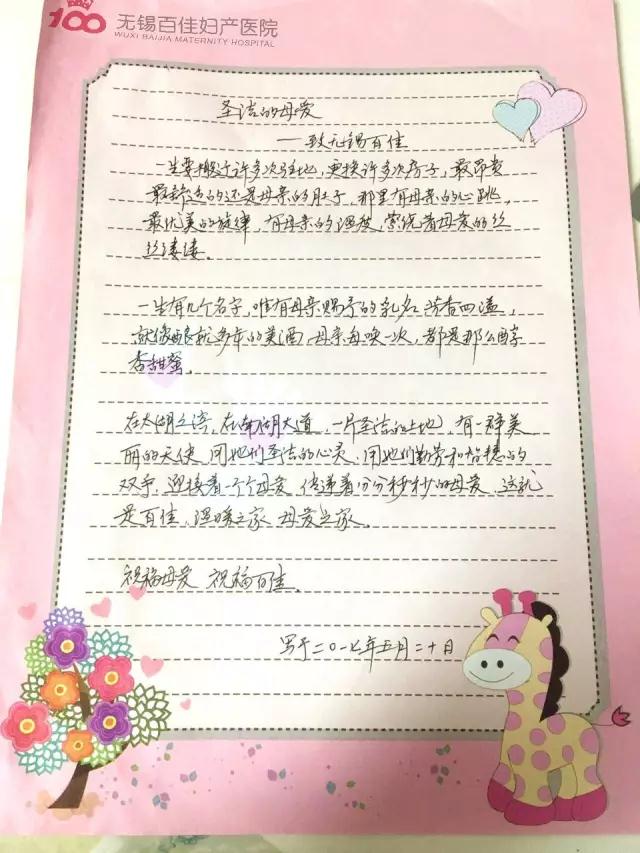 100 无锡百佳妇产医院
WUXI BAIJIA MATERNITY HOSPITAL
圣洁的母爱
——致无锡百佳
一生要搬迁许多次驻地,更换许多次房子,最昂贵
最出色的还是母亲的肚子,那里有母亲的心跳,
最优美的旋律,有母亲的温度,萦绕着母爱的丝
丝缕缕.
一生有几个名字,唯有母亲赐予的乳名芳香四溢,
就像酿就多年的美酒,母亲每唤一次,都是那么醇
香甜蜜.
在太湖之滨,在南湖大道,一片圣洁的土地,有一群美
丽的天使,用她们圣洁的心灵,用她们勤劳和智慧的
双手,迎接着一个个母爱,传递着分分秒秒的母爱,这就
是百佳,温暖之家,母爱之家.
祝福母爱 祝福百佳.
写于二〇一七年五月二十日